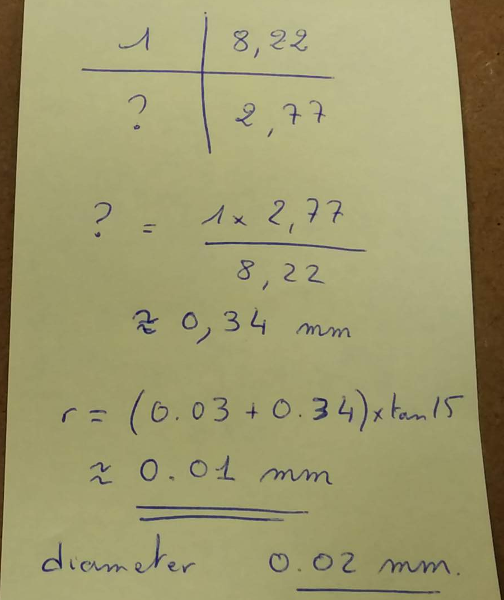 1 | 8,22
? | 2,77
? = 1 x 2,77
8,22
≈ 0,34 mm
r = (0.03 + 0.34) x tan 15
≈ 0.01 mm
diameter 0.02 mm.